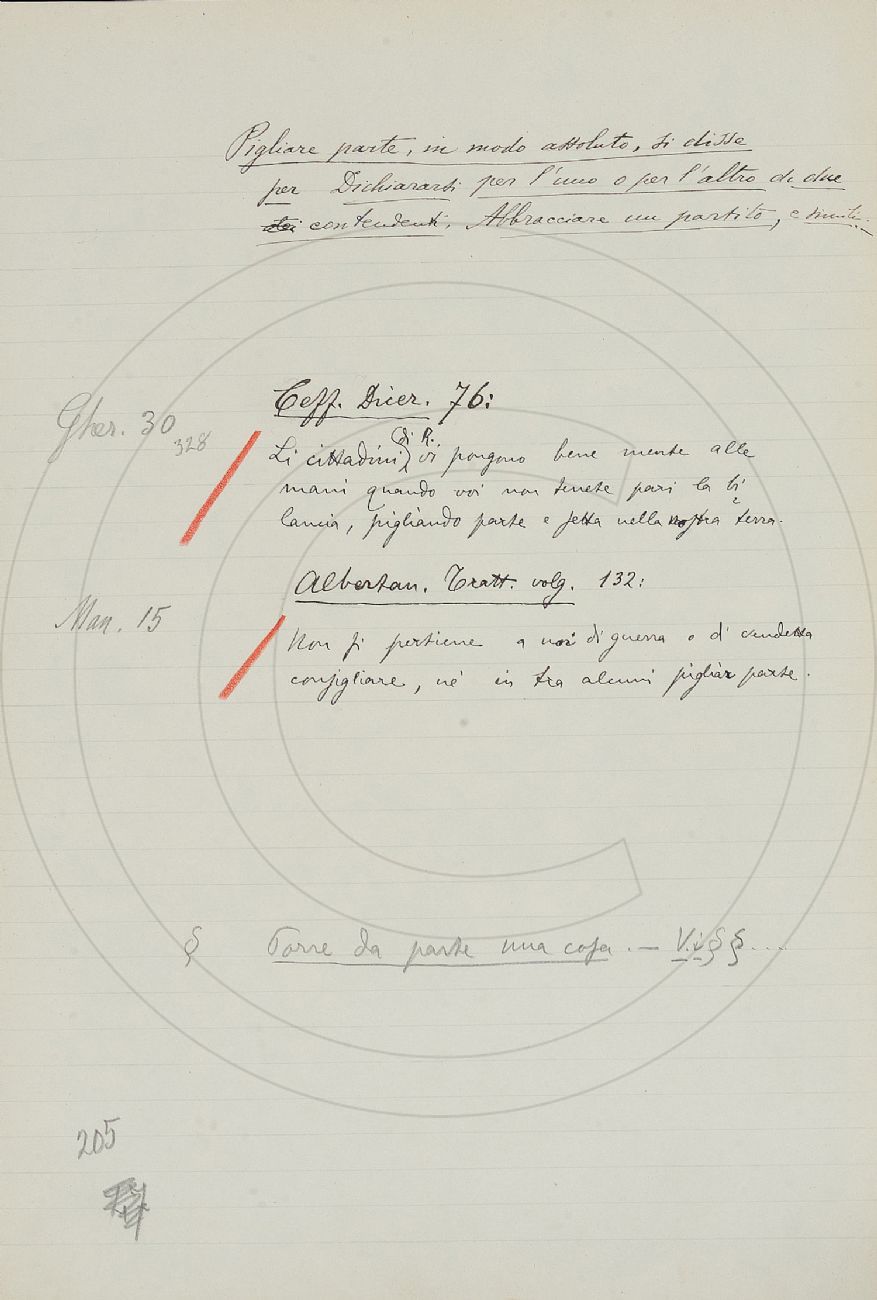 Pigliare parte, in modo assoluto, si disse
per Dichiararsi per l'uno o per l'altro di due
dei contendenti, Abbracciare un partito, e simili.
Gher. 30
328
Ceff. Dicer. 76:
Li cittadini (di R.) vi pongono bene mente alle
mani quando voi non tenete pari la bi
lancia, pigliando parte e setta nella nostra terra.
Man. 15
Albertan. Tratt. volg. 132:
Non si pertiene a noi di guerra o di vendetta
consigliare, nè in tra alcuni pigliar parte.
§ Torre da parte una cosa. — V. i §§ ...
205